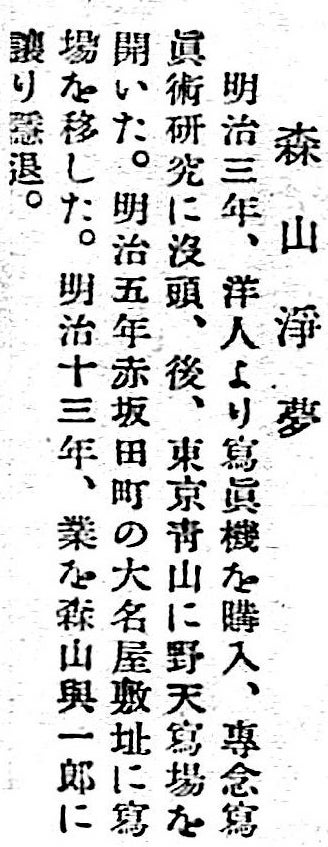 森山淨夢
明治三年、洋人より寫眞機を購入、專念寫
眞術研究に沒頭、後、東京靑山に野天寫場を
開いた。明治五年赤坂田町の大名屋敷址に寫
場を移した。明治十三年、業を森山與一郎に
讓り隱退。